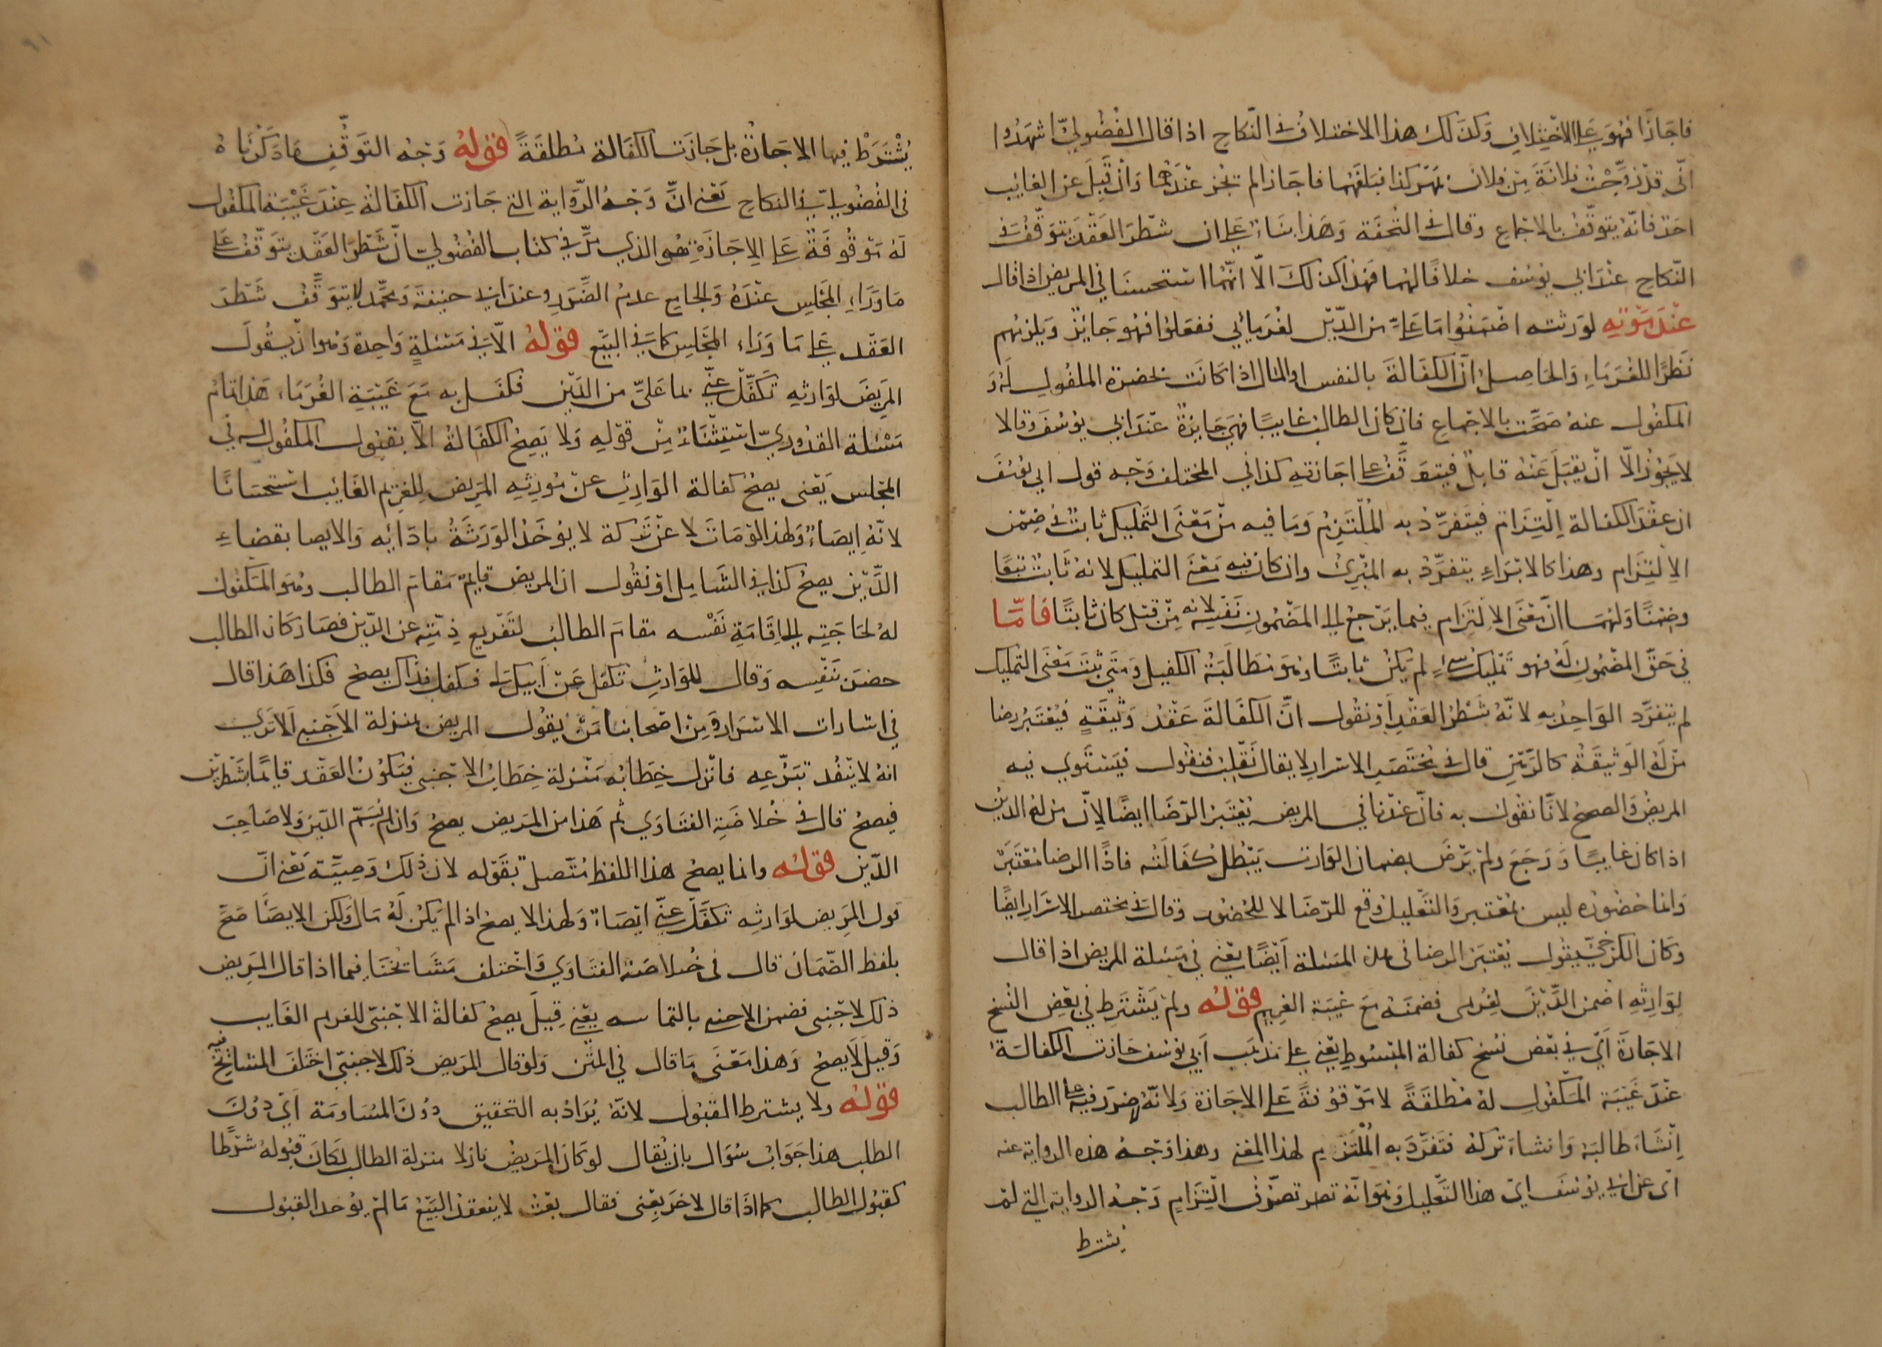 فاجازا فهو على الاختلاف وكذلك هذا الاختلاف في النكاح اذا قال الفضولي اشهدوا
اني قد زوجت فلانة من فلان بمهر كذا فبلغهما فاجازا لم يجز عندهما وان قبل عن الغايب
احد فانه يتوقف بالاجماع وقال في التحفة وهذا بناء على ان شطر العقد يتوقف في
النكاح عند ابي يوسف خلافا لهما فهذا كذلك الا انهما استحسنا في المريض اذا قال
عند موته لورثته اضمنوا ما علي من الدين لغرمائي ففعلوا فهو جايز ويلزمهم
نظرا للغرماء والحاصل ان الكفالة بالنفس او المال اذا كانت بحضرة المكفول له و
المكفول عنه صحت بالاجماع فان كان الطالب غايبا فهي جايزة عند ابي يوسف وقالا
لا يجوز الا ان يقبل عنه قابل فيتوقف على اجازته كذا في المختلف وجه قول ابي يوسف
ان عقد الكفالة التزام فيتفرد به الملتزم وما فيه من معنى التمليك ثابت في ضمن
الالتزام وهذا كالابراء يتفرد به المبرئ وان كان فيه معنى التمليك لانه ثابت تبعا
وضمنا ولهما ان معنى الالتزام فيما يرجع الى المضمون نفيسه لانه من قبل كان ثابتا فاما
في حق المضمون له فهو تمليك شيء لم يكن ثابتا وهو مطالبة الكفيل ومتى ثبت معنى التمليك
لم يتفرد الواحد به لانه شطر العقد او نقول ان الكفالة عقد وثيقة فيعتبر رضا
من له الوثيقة كالرهن قال في مختصر الاسرار لا يقال نقلب فنقول فيستوي فيه
المريض والصحيح لانا نقول به فان عندنا في المريض يعتبر الرضا ايضا لان من له الدين
اذا كان غايبا ورجع ولم يرض بضمان الوارث يبطل كفالته فاذا الرضا معتبر
وانما حضوره ليس بمعتبر والتعليل وقع للرضا لا للحضور وقال في مختصر الاسرار ايضا
وكان الكرخي يقول يعتبر الرضا في هذه المسئلة ايضا يعني في مسئلة المريض اذا قال
لوارثه اضمن الدين لغريمي فضمنه مع غيبة الغريم قوله ولم يشترط في بعض النسخ
الاجازة اي في بعض نسخ كفالة المبسوط يعني على مذهب ابي يوسف جازت الكفالة
عند غيبة المكفول له مطلقة لا موقوفة على الاجازة ولانه لا ضرر فيه على الطالب
ان شاء طالبه وان شاء تركه فتفرد به الملتزم لهذا المعنى وهذا وجه هذه الرواية عنه
اي عن ابي يوسف اي هذا التعليل وهو انه تصرف التزام وجه الرواية التي لم
يشترط
يشترط فيها الاجازة بل جازت الكفالة مطلقة قوله وجه التوقف ما ذكرناه
في الفضولي في النكاح يعني ان وجه الرواية التي جازت الكفالة عند غيبة المكفول
له موقوفة على الاجازة هو الذي مر في كتاب الفضولي ان شطر العقد يتوقف على
ما وراء المجلس عنده والجامع عدم الضرر وعند ابي حنيفة ومحمد لا يتوقف شطر
العقد على ما وراء المجلس كما في البيع قوله الا في مسئلة واحدة وهو ان يقول
المريض لوارثه تكفل عني بما علي من الدين فكفل به مع غيبة الغرماء هذا تمام
مسئلة القدوري استثناء من قوله ولا يصح الكفالة الا بقبول المكفول له في
المجلس يعني يصح كفالة الوارث عن مورثه المريض للغريم الغايب استحسانا
لانه ايصاء ولهذا لو مات لا عن تركة لا يوخذ الورثة بادائه والايصا بقضاء
الدين يصح كذا في الشامل او نقول ان المريض قايم مقام الطالب وهو المكفول
له لحاجته الى اقامة نفسه مقام الطالب لتفريغ ذمته عن الدين فصار كان الطالب
حضر بنفسه وقال للوارث تكفل عن ابيك لي فكفل فذاك يصح فكذا هذا قال
في اشارات الاسرار ومن اصحابنا من يقول المريض بمنزلة الاجنبي الا ترى
انه لا ينفد تبرعه فانزل خطابه منزلة خطاب الاجنبي فيكون العقد قايما بشطرين
فيصح قال في خلاصة الفتاوي ثم هذا من المريض يصح وان لم يسم الدين ولا صاحب
الدين قوله وانما يصح هذا اللفظ متصل بقوله لان ذلك وصية يعني ان
قول المريض لوارثه تكفل عني ايصاء ولهذا لا يصح اذا لم يكن له مال ولكن الايصا صح
بلفظ الضمان قال في خلاصة الفتاوي واختلف مشايخنا فيما اذا قال المريض
ذلك لاجنبي فضمن الاجنبي بالتماسه يعني قيل يصح كفالة الاجنبي للغريم الغايب
وقيل لا يصح وهذا معنى ما قال في المتن ولو قال المريض ذلك لاجنبي اختلف المشايخ فيه
قوله ولا يشترط القبول لانه يراد به التحقيق دون المساومة اي دون
الطلب هذا جواب سؤال بان يقال لو كان المريض نازلا منزلة الطالب لكان قبوله شرطا
كقبول الطالب كما اذا قال لاخر بعني فقال بعت لا ينعقد البيع ما لم يوجد القبول